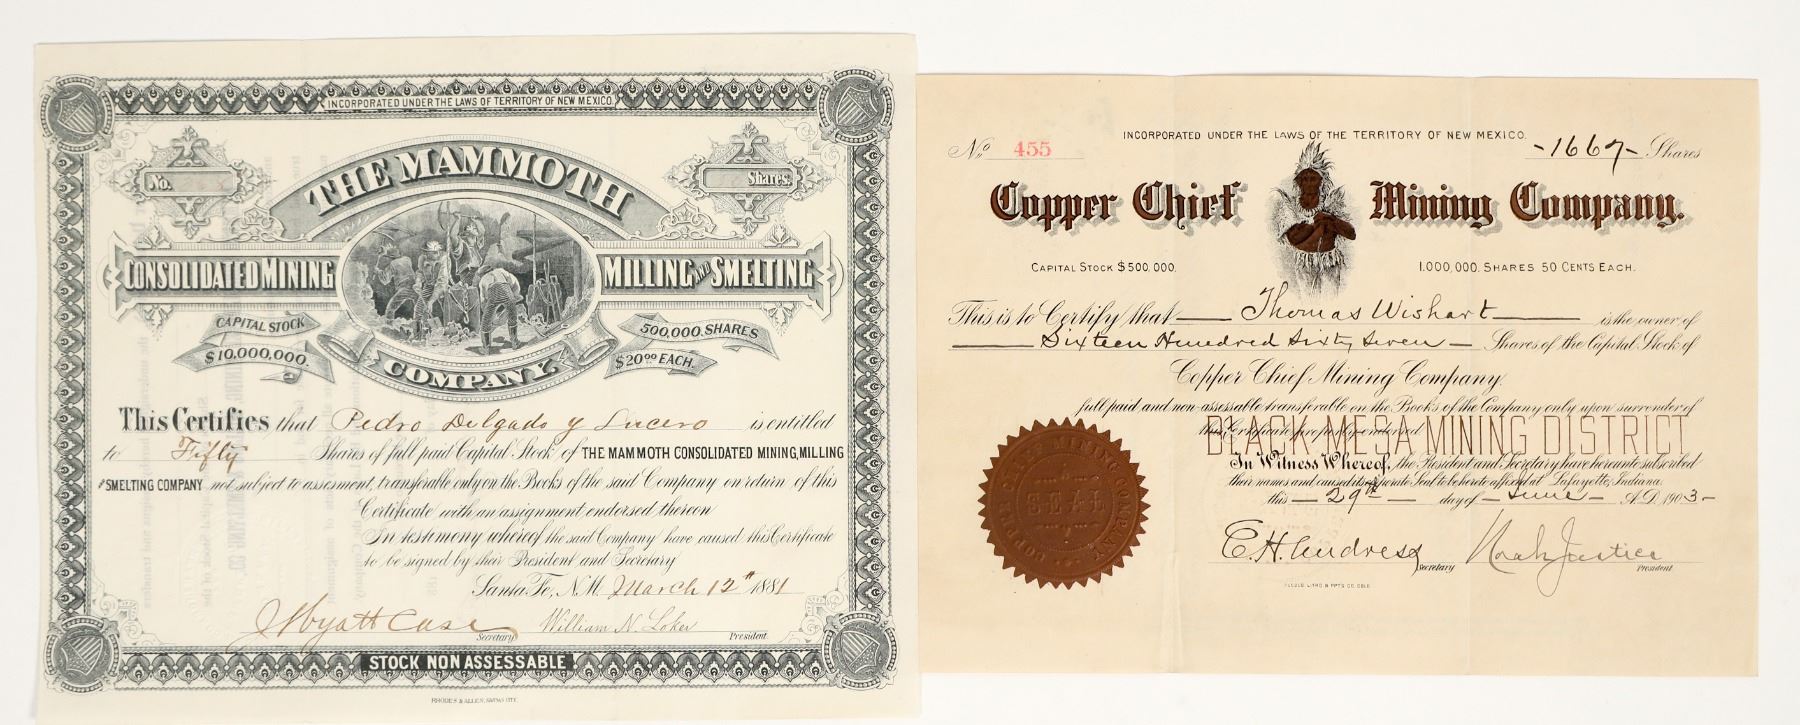 INCORPORATED UNDER THE LAWS OF TERRITORY OF NEW MEXICO.
No.
Shares.
THE MAMMOTH
CONSOLIDATED MINING MILLING AND SMELTING
COMPANY.
CAPITAL STOCK
$10,000,000.
500,000. SHARES
$20.00 EACH.
This Certifies that Pedro Delgado y Lucero is entitled
to Fifty Shares of full paid Capital Stock of THE MAMMOTH CONSOLIDATED MINING, MILLING
& SMELTING COMPANY not subject to assessment, transferable only on the Books of the said Company on return of this
Certificate with an assignment endorsed thereon
In testimony whereof the said Company have caused this Certificate
to be signed by their President and Secretary
Santa Fe, N.M. March 12th 1881
J Wyatt Case Secretary William N. Loker President.
STOCK NON ASSESSABLE
RHODES & ALLEN, KANSAS CITY.
INCORPORATED UNDER THE LAWS OF THE TERRITORY OF NEW MEXICO.
No. 455
-1667- Shares
Copper Chief Mining Company.
CAPITAL STOCK $500,000.
1,000,000. SHARES 50 CENTS EACH.
This is to Certify that Thomas Wishart is the owner of
Sixteen Hundred Sixty Seven Shares of the Capital Stock of
Copper Chief Mining Company.
full paid and non-assessable transferable on the Books of the Company only upon surrender of
this Certificate properly endorsed.
BLACK MESA MINING DISTRICT
In Witness Whereof, the President and Secretary have hereunto subscribed
their names and caused its corporate Seal to be hereto affixed at Lafayette, Indiana.
this 29th day of June A.D. 1903-
COPPER CHIEF MINING COMPANY
SEAL
E. H. Andress Secretary Noah Justice President.